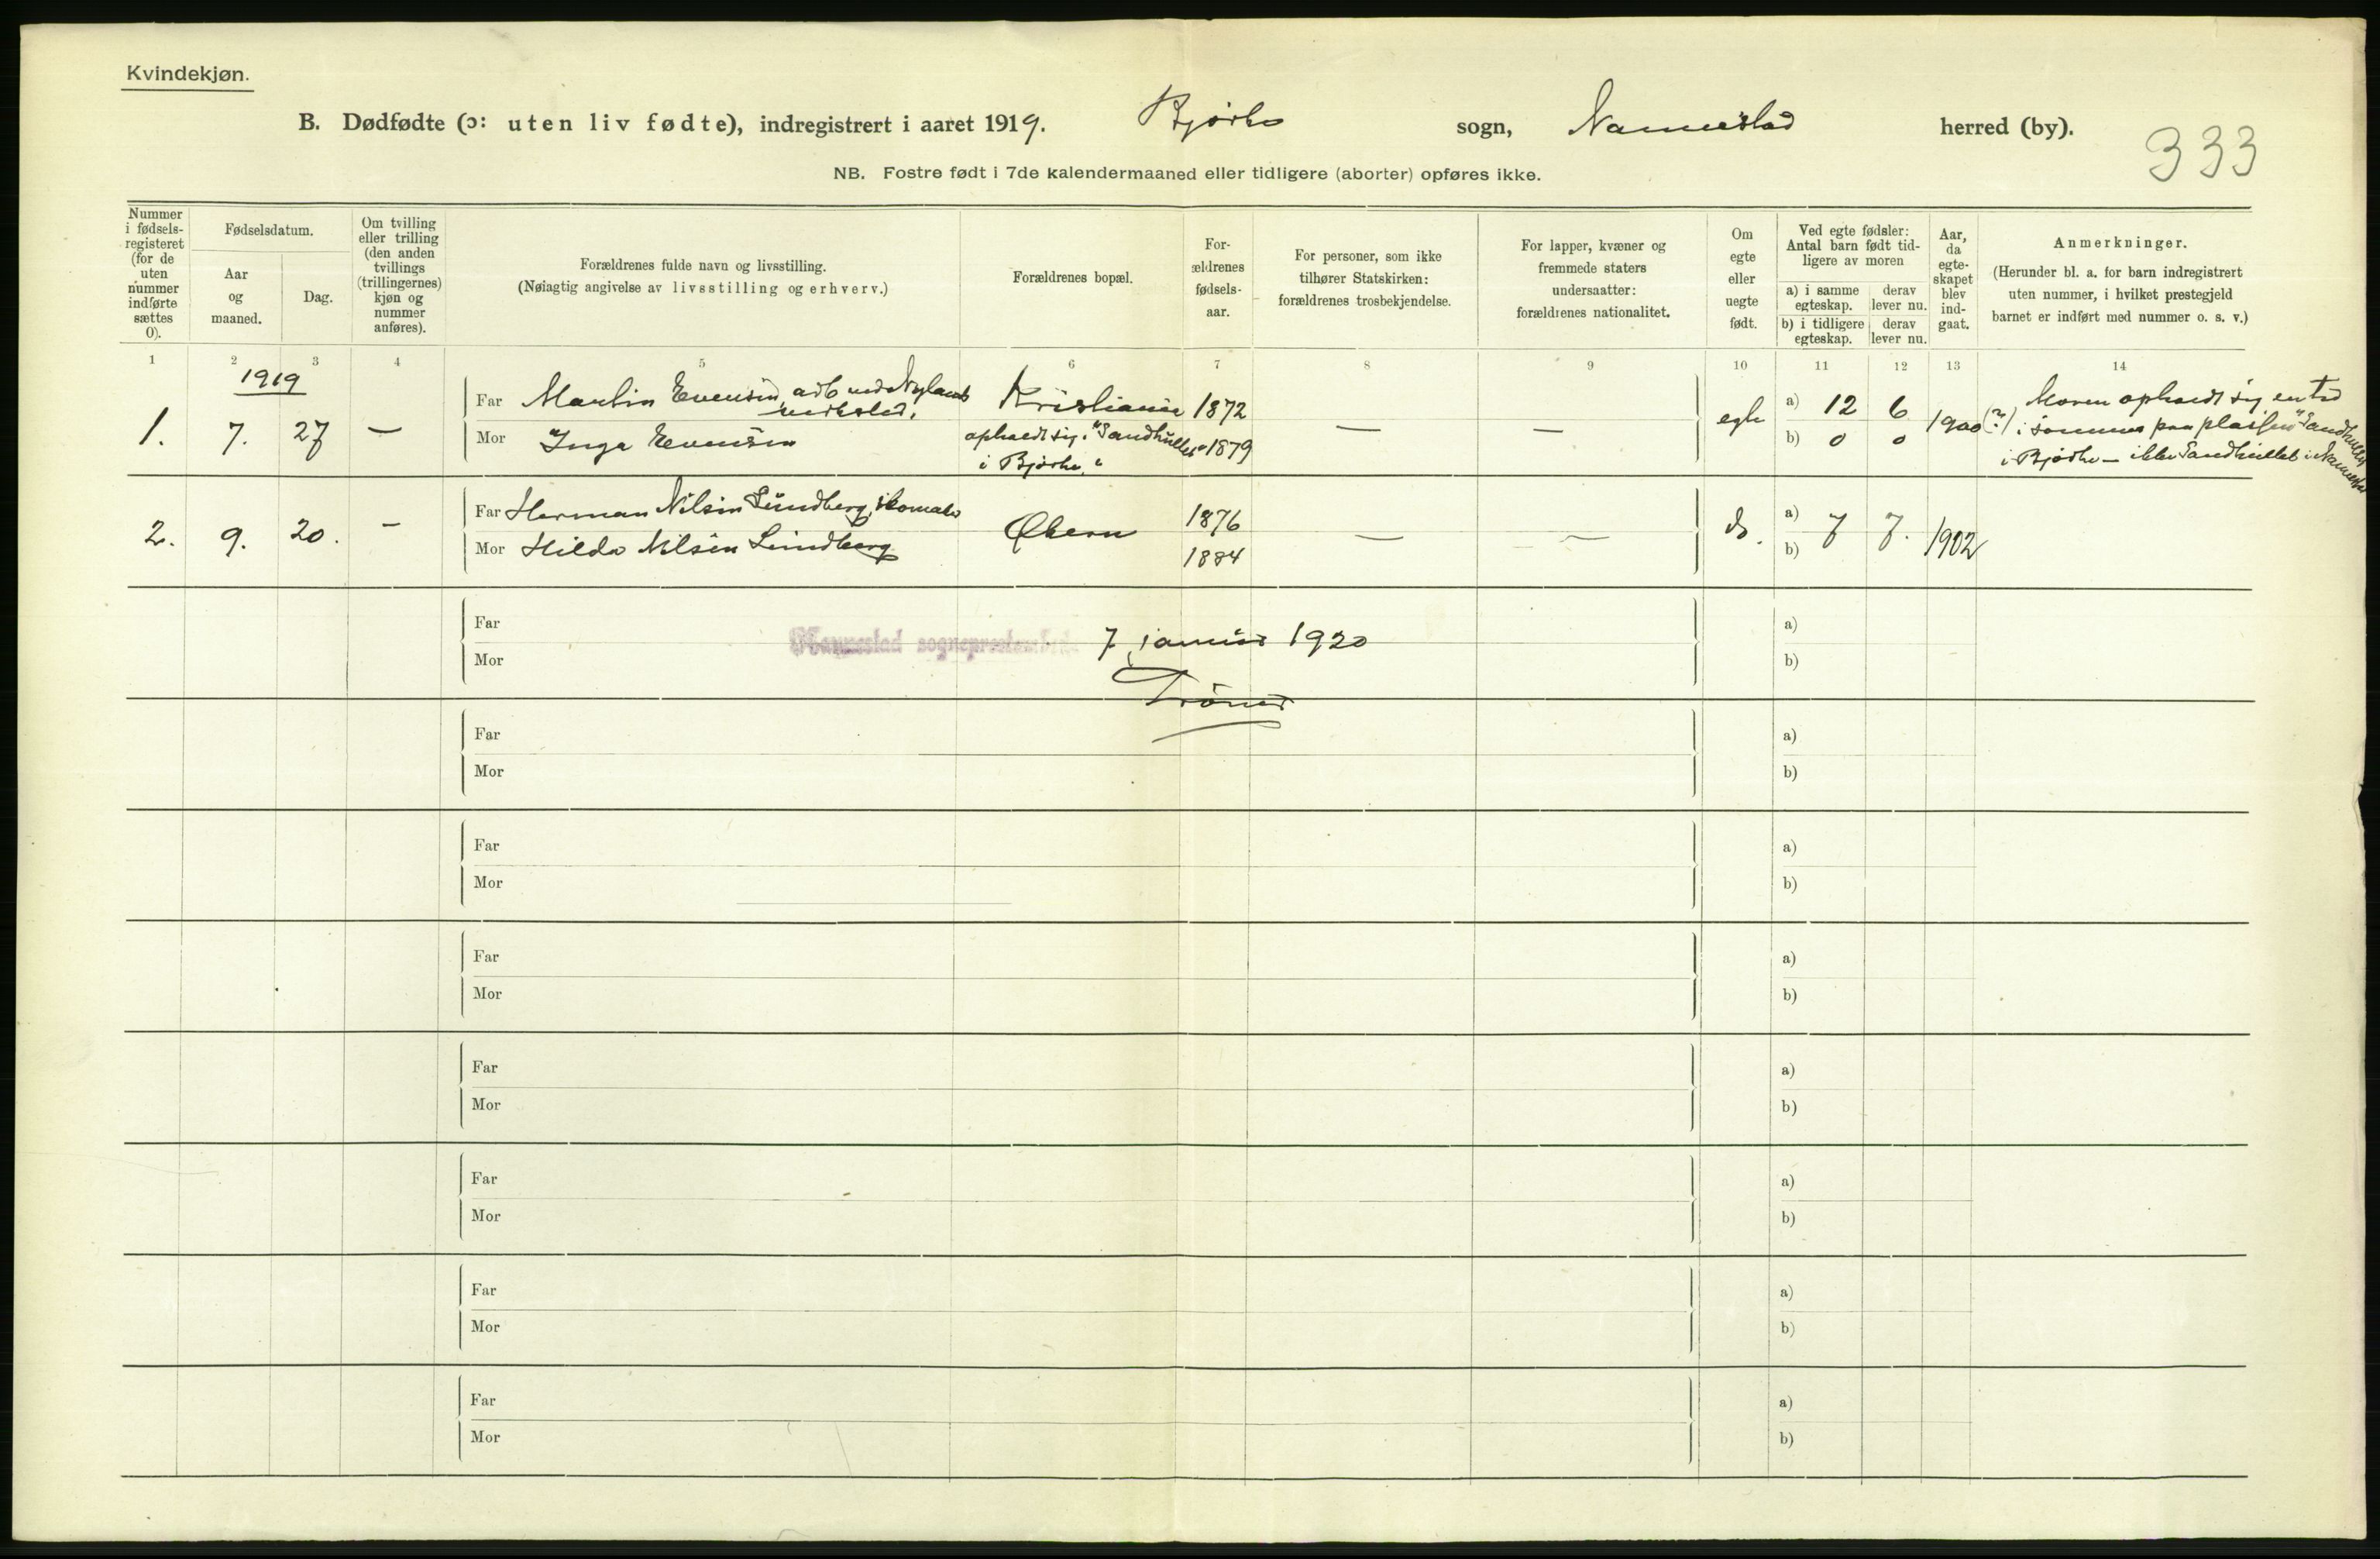 Kvindekjøn.
B. Dødfødte (ɔ: uten liv fødte), indregistrert i aaret 1919. Bjørke sogn, Nannestad herred (by).
333
NB. Fostre født i 7de kalendermaaned eller tidligere (aborter) opføres ikke.
Nummer i fødsels-registeret (for de uten nummer indførte sættes 0).
Fødselsdatum.
Aar og maaned.
Dag.
Om tvilling eller trilling (den anden tvillings (trillingernes) kjøn og nummer anføres).
Forældrenes fulde navn og livsstilling.
(Nøiagtig angivelse av livsstilling og erhverv.)
Forældrenes bopæl.
For-ældrenes fødsels-aar.
For personer, som ikke tilhører Statskirken: forældrenes trosbekjendelse.
For lapper, kvæner og fremmede staters undersaatter: forældrenes nationalitet.
Om egte eller uegte født.
Ved egte fødsler: Antal barn født tid-ligere av moren
a) i samme egteskap. derav lever nu.
b) i tidligere egteskap. derav lever nu.
Aar, da egte-skapet blev ind-gaat.
Anmerkninger.
(Herunder bl. a. for barn indregistrert uten nummer, i hvilket prestegjeld barnet er indført med nummer o. s. v.)
1 2 3 4 5 6 7 8 9 10 11 12 13 14
1919
1. 7. 27 —
Far Martin Evensen, arb. ved Nylands verksted.
Kristiania 1872
Mor Inga Evensen
opholdt sig i "Sandhullet" i Bjørke. 1879
— — egte a) 12 6
b) 0 0
1900 (?)
Moren opholdt sig en tid
i sommer paa plassen "Sandhullet"
i Bjørke — ikke Sandhullet i Nannestad
2. 9. 20. —
Far Herman Nilsen Lundberg, skomaker
Mor Hilda Nilsen Lundberg
Økern 1876
1884
— — do. a) b) 7 7. 1902
Far
Mor
Nannestad sogneprestembede 7 januar 1920
a)
b)
Far
Mor
a)
b)
Far
Mor
a)
b)
Far
Mor
a)
b)
Far
Mor
a)
b)
Far
Mor
a)
b)
Far
Mor
a)
b)
Far
Mor
a)
b)